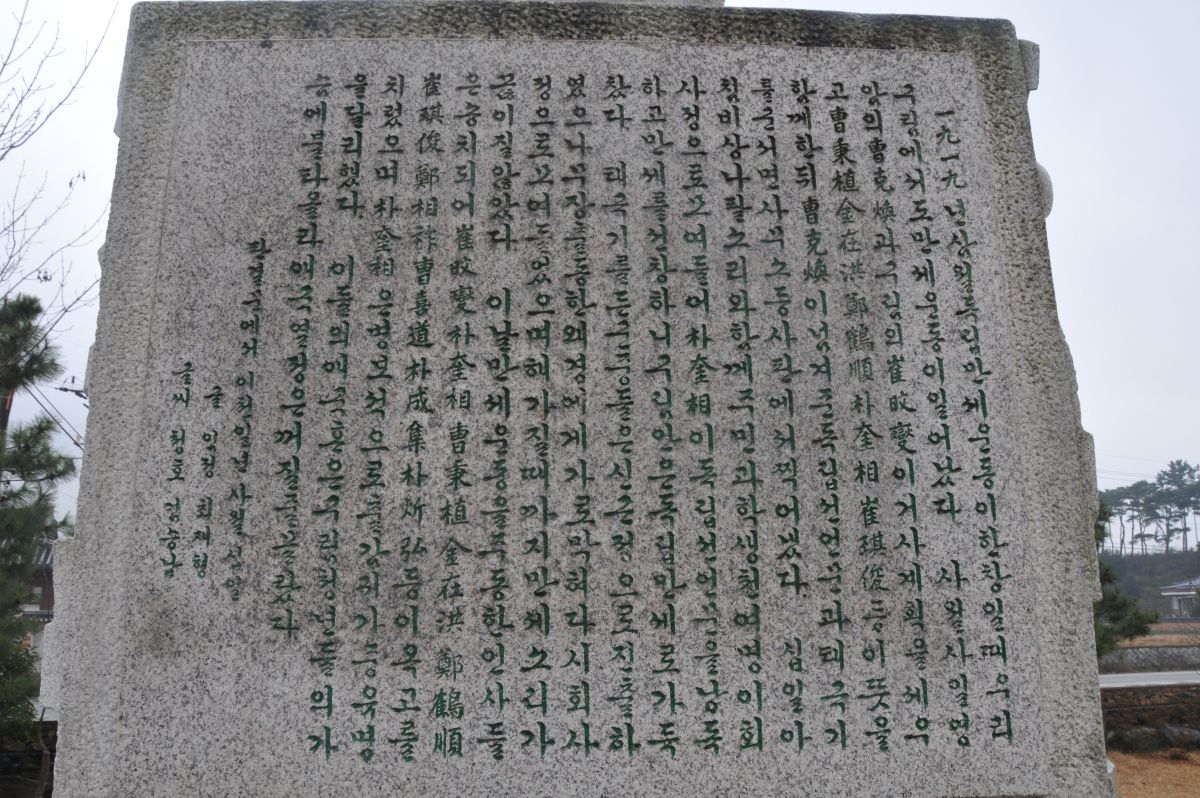 一九一九년삼월독립만세운동이한창일때우리
구림에서도만세운동이일어났다 사월사일영
암의曹克煥과구림의崔旼燮이거사계획을세우
고曹秉植金在洪鄭鶴順朴奎相崔琪俊등이뜻을
함께한뒤曹克煥이넘겨준독립선언문과태극기
를준서면사무소등사판에서찍어냈다. 십일아
침비상나팔소리와함께주민과학생천여명이회
사정으로모여들어朴奎相이독립선언문을낭독
하고만세를선창하니구림안은독립만세로가득
찼다. 태극기를든군중들은신근정으로진출하
였으나무장출동한왜경에게가로막혀다시회사
정으로모여들었으며해가질때까지만세소리가
끊이질않았다 이날만세운동을주동한인사들
은송치되어崔旼燮朴奎相曹秉植金在洪鄭鶴順
崔琪俊鄭相祚曹喜道朴成集朴炘弘등이옥고를
치렀으며朴奎相은병보석으로출감쥐가등육병
을달리했다. 이들의애국혼은구림청년들의가
슴에불타올라애국열정은꺼질줄몰랐다
단결문에서 이천일년사월십일
글 인정 최재형
글씨 청호 김농남